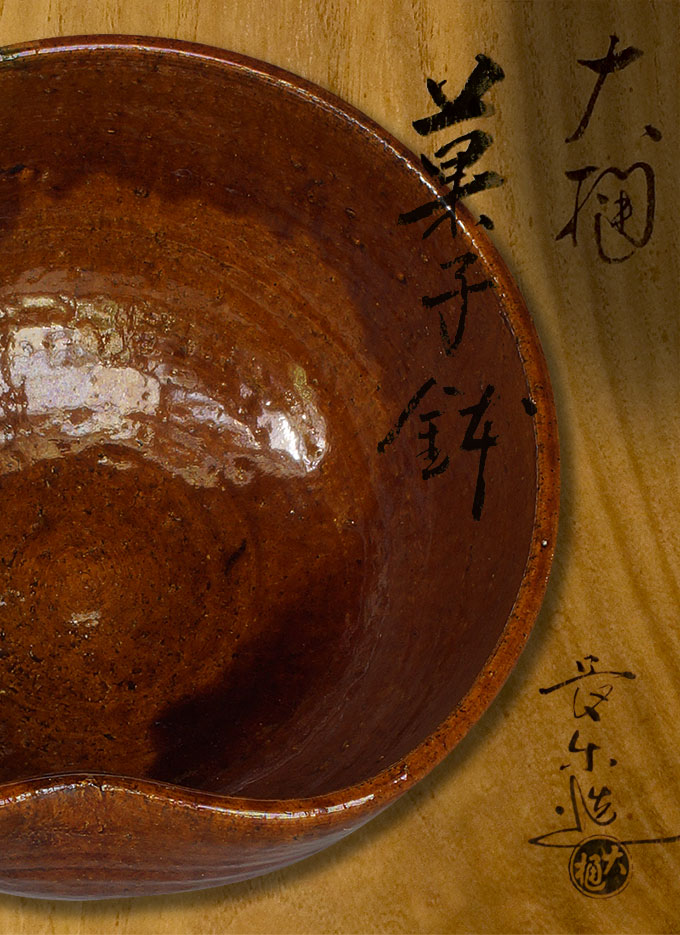 大樋
菓子鉢
長楽造
大樋